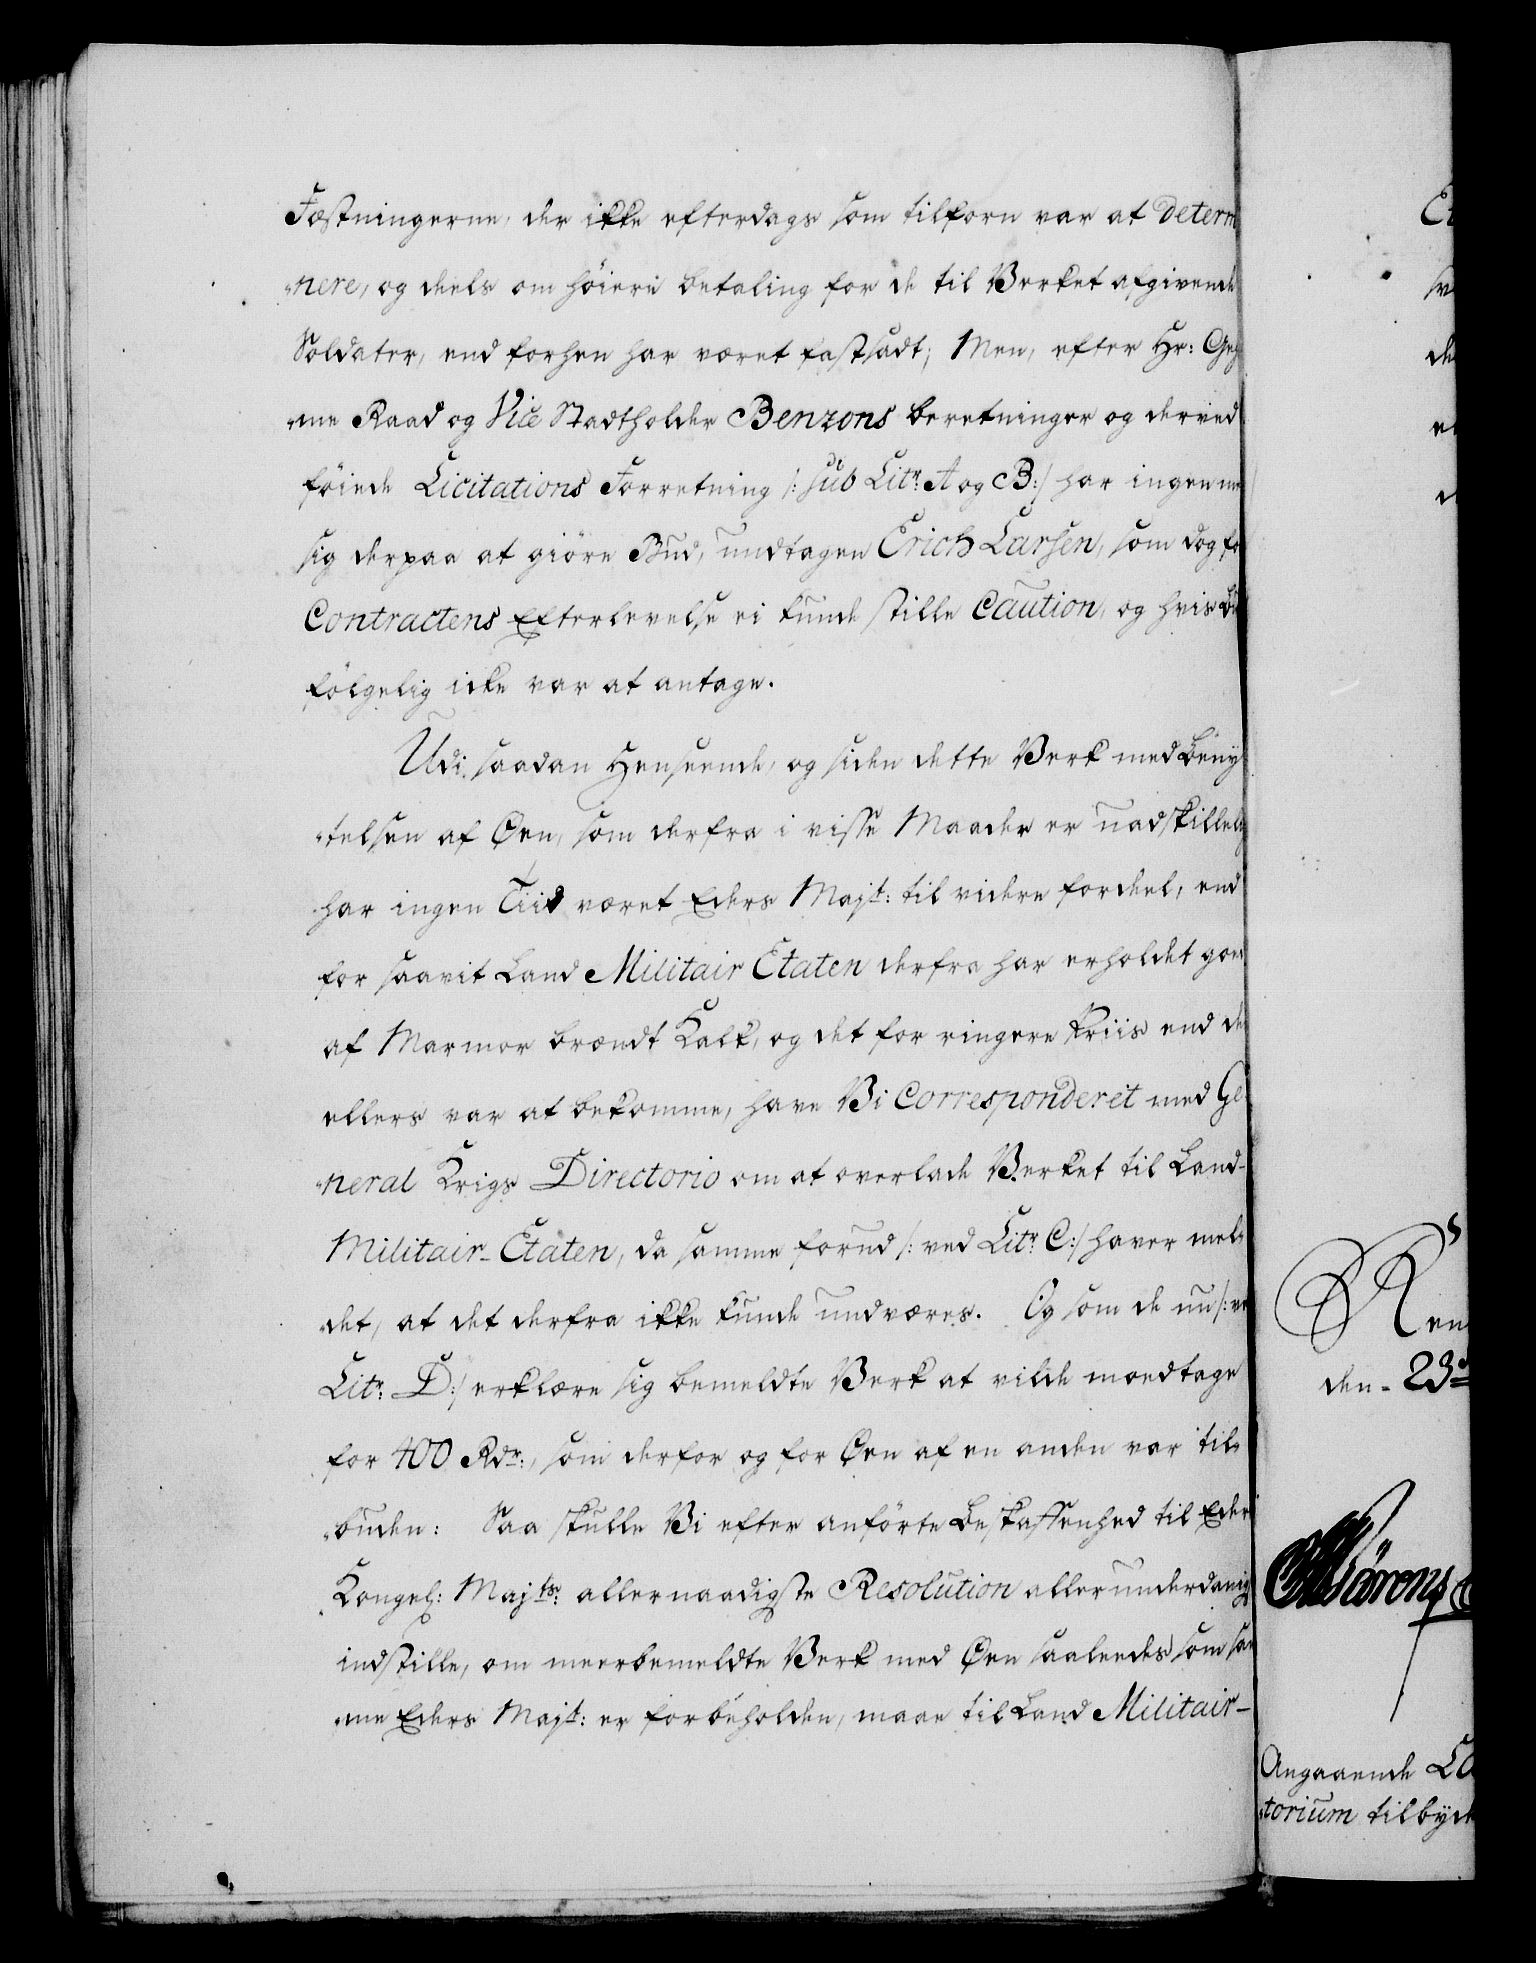 Fæstningerne, der ikke efterdags som tilforn var at determ
nere, og deels om höiere betaling for de til Verket afgivende
Soldater, end forhen har været fastsadt; Men, efter Hr: Geh
me Raad og Vice Stadtholder Benzons beretninger og derved
föiede Licitations Forretning /: sub Litr: A og B:/ har ingen
sig derpaa at giöre Bud, undtagen Erich Larsen, som dog for
Contractens Efterlevelse ei kunde stille Caution, og hvis Bu
fölgelig icke var at antage.
Udi saadan Henseende, og siden dette Verk med Beny
telsen af Øen, som derfra i visse Maader er uadskillelig
har ingen Tiid været Eders Majt: til videre fordeel, end
for saavit Land Militair Etaten derfra har erholdet goed
af Marmor brændt Kalk, og det for ringere Priis end de
ellers var at bekomme, have Vi Corresponderet med Ge
neral Krigs Directorio om at overlade Verket til Land-
Militair-Etaten, da samme forud /: ved Litr: C:/ haver mel-
det, at det derfra ikke kunde undværes. Og som de nu /: ve
Litr: D:/ erklære sig bemeldte Verk at vilde modtage
for 400 Rdr:, som derfor og for Øen af en anden var til-
buden: Saa skulle Vi efter anförte Beskaffenhed til Eders
Kongel: Majts: allernaadigste Resolution allerunderdanig
indstille, om meerbemeldte Verk med Øen saaleedes som sam
me Eders Majt: er forbeholden, maae til Land Militair-
Et
den 23
Angaaende
torium tilbyd